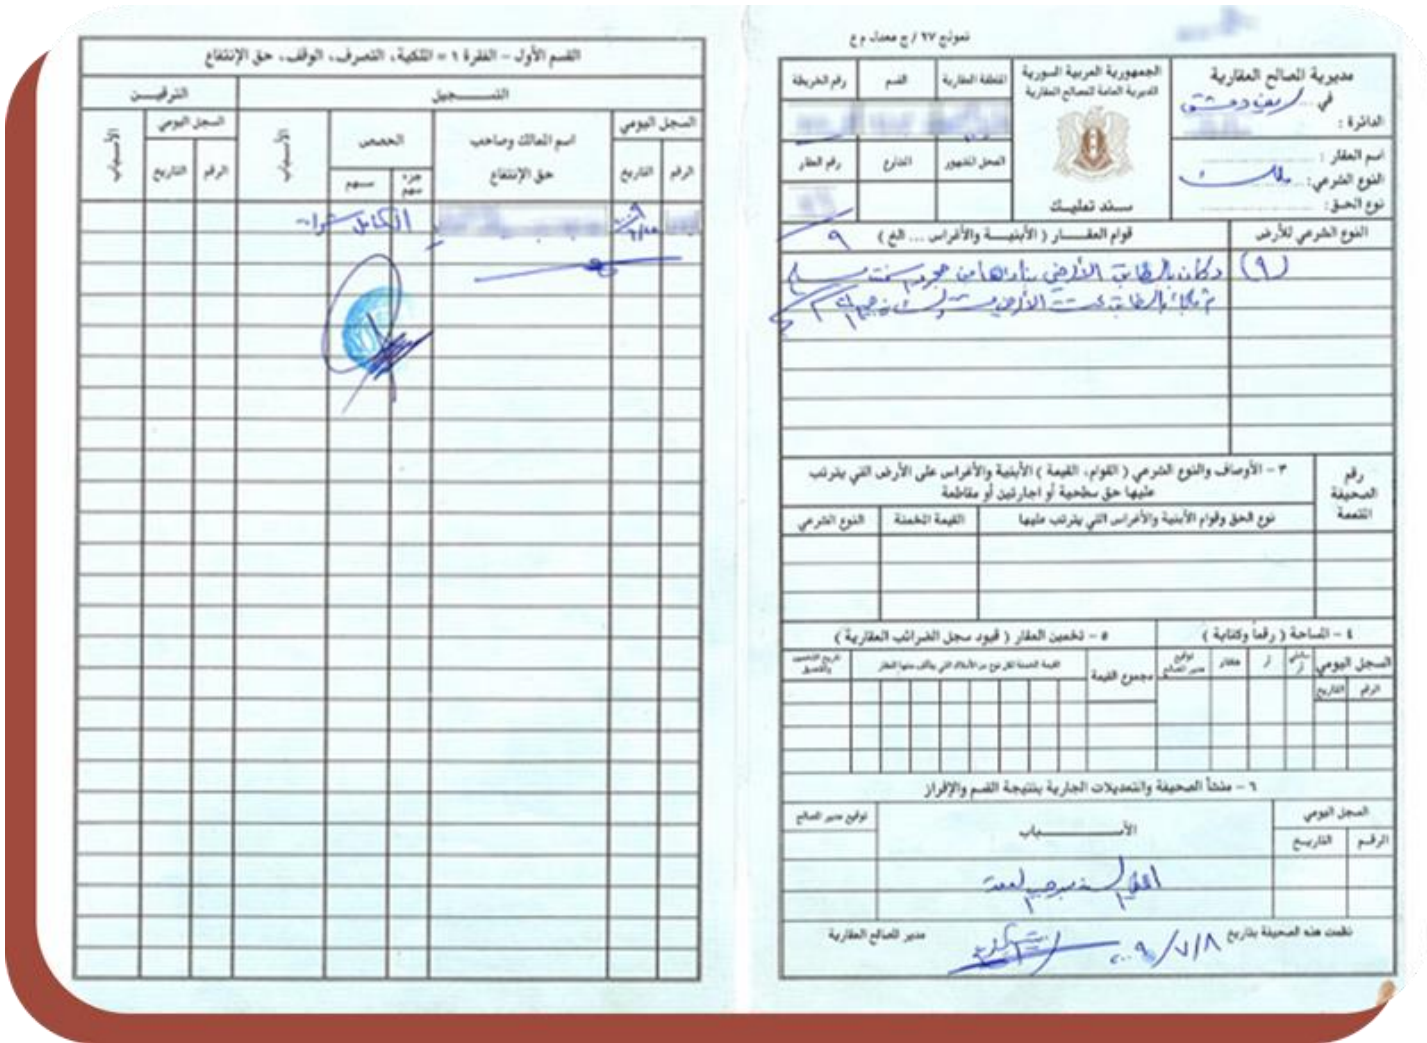 نموذج ٦٧ / ج معدل م ع
مديرية المصالح العقارية
في ريف دمشق
الدائرة :
اسم العقار :
النوع الشرعي : ملك
نوع الحق :
الجمهورية العربية السورية
المديرية العامة للمصالح العقارية
سند تمليك
المنطقة العقارية
القسم
رقم الخريطة
المحل المشهور
الشارع
رقم العقار
النوع الشرعي للأرض
قوام العقار ( الأبنية والأغراس ... الخ )
٩
(٩)
دكان بالطابق الأرضي بناؤها من حجر و اسمنت مسلح
بالطابق تحت الأرضي
رقم الصحيفة المتممة
٣ - الأوصاف والنوع الشرعي ( القوام، القيمة ) الأبنية والأغراس على الأرض التي يترتب
عليها حق سطحية أو اجارتين أو مقاطعة
نوع الحق وقوام الأبنية والأغراس التي يترتب عليها
القيمة المخمنة
النوع الشرعي
٤ - المساحة ( رقماً وكتابة )
٥ - تخمين العقار ( قيود سجل الضرائب العقارية )
السجل اليومي
الرقم
التاريخ
سانتي آر
آر
هكتار
توقيع مدير المصالح
مجموع القيمة
القيمة المخمنة لكل نوع من الأملاك التي يتألف منها العقار
تاريخ التخمين والتعديل
٦ - منشأ الصحيفة والتعديلات الجارية بنتيجة القسم والإفراز
السجل اليومي
الرقم
التاريخ
الأسباب
توقيع مدير المصالح
نظمت هذه الصحيفة بتاريخ ٨/٧/٢٠٠٩
مدير المصالح العقارية
القسم الأول - الفقرة ١ = الملكية، التصرف، الوقف، حق الإنتفاع
التسجيل
الترقين
السجل اليومي
الرقم
التاريخ
اسم المالك وصاحب
حق الإنتفاع
الحصص
جزء سهم
سهم
الأسباب
السجل اليومي
الرقم
التاريخ
الأسباب
الكامل شراء